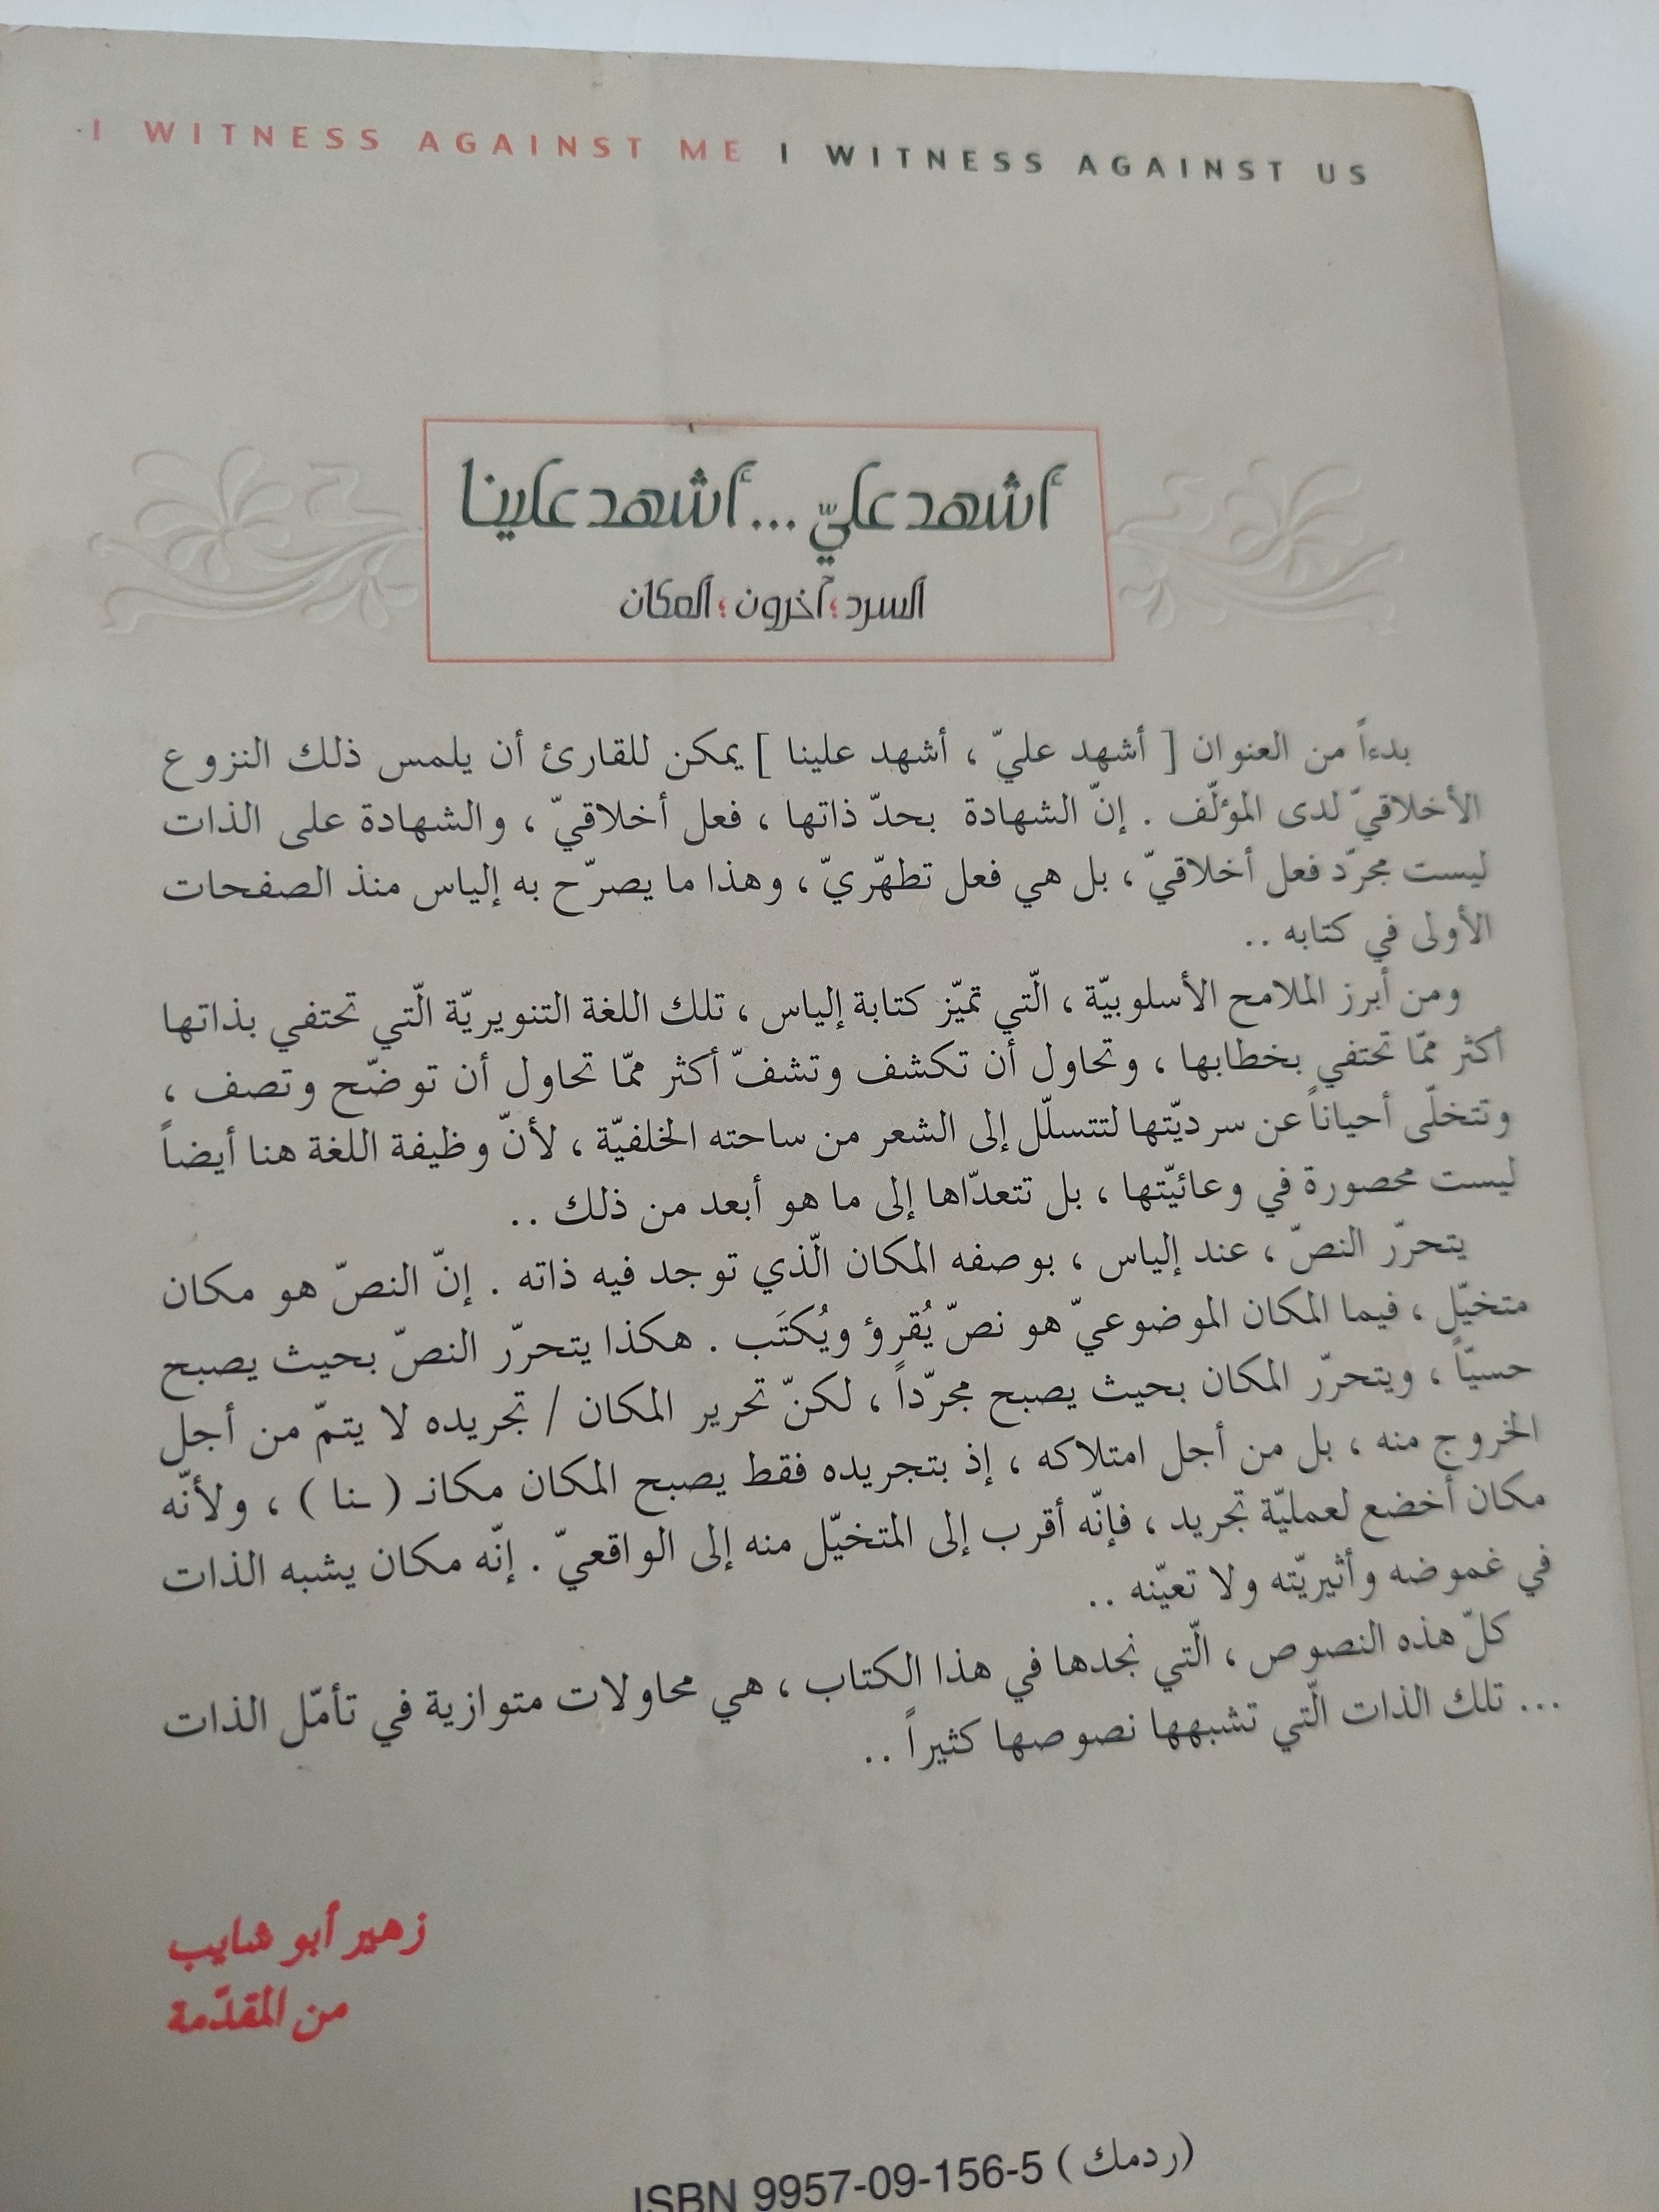 I WITNESS AGAINST ME I WITNESS AGAINST US
أشهد عليّ ... أشهد علينا
السرد؛ آخرون؛ المكان
بدءاً من العنوان [ أشهد عليّ ، أشهد علينا ] يمكن للقارئ أن يلمس ذلك النزوع
الأخلاقيّ لدى المؤلّف . إنّ الشهادة بحدّ ذاتها ، فعل أخلاقيّ ، والشهادة على الذات
ليست مجرّد فعل أخلاقيّ ، بل هي فعل تطهّريّ ، وهذا ما يصرّح به إلياس منذ الصفحات
الأولى في كتابه ..
ومن أبرز الملامح الأسلوبيّة ، الّتي تميّز كتابة إلياس ، تلك اللغة التنويريّة الّتي تحتفي بذاتها
أكثر ممّا تحتفي بخطابها ، وتحاول أن تكشف وتشفّ أكثر ممّا تحاول أن توضّح وتصف ،
وتتخلّى أحياناً عن سرديّتها لتتسلّل إلى الشعر من ساحته الخلفيّة ، لأنّ وظيفة اللغة هنا أيضاً
ليست محصورة في وعائيّتها ، بل تتعدّاها إلى ما هو أبعد من ذلك ..
يتحرّر النصّ ، عند إلياس ، بوصفه المكان الّذي توجد فيه ذاته . إنّ النصّ هو مكان
متخيّل ، فيما المكان الموضوعيّ هو نصّ يُقرؤ ويُكتَب . هكذا يتحرّر النصّ بحيث يصبح
حسيّاً ، ويتحرّر المكان بحيث يصبح مجرّداً ، لكنّ تحرير المكان / تجريده لا يتمّ من أجل
الخروج منه ، بل من أجل امتلاكه ، إذ بتجريده فقط يصبح المكان مكانـ ( ـنا ) ، ولأنّه
مكان أخضع لعمليّة تجريد ، فإنّه أقرب إلى المتخيّل منه إلى الواقعيّ . إنّه مكان يشبه الذات
في غموضه وأثيريّته ولا تعيّنه ..
كلّ هذه النصوص ، الّتي نجدها في هذا الكتاب ، هي محاولات متوازية في تأمّل الذات
... تلك الذات الّتي تشبهها نصوصها كثيراً ..
زهير أبو شايب
من المقدّمة
(ردمك) ISBN 9957-09-156-5